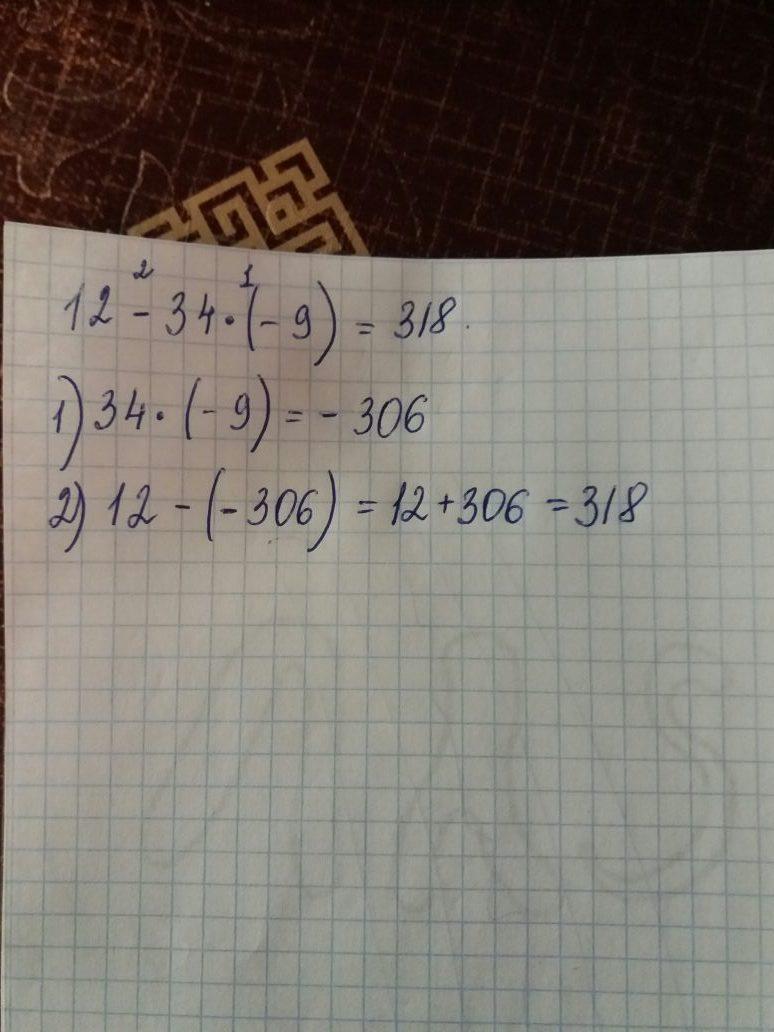 2 1
12 - 34 · (- 9) = 318.
1) 34 · (- 9) = - 306
2) 12 - (- 306) = 12 + 306 = 318